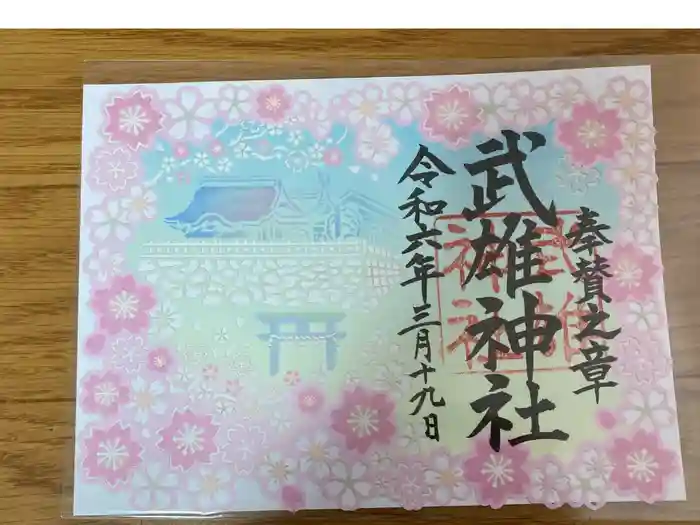 奉賛之章
武雄神社
武雄
神社
令和六年三月十九日